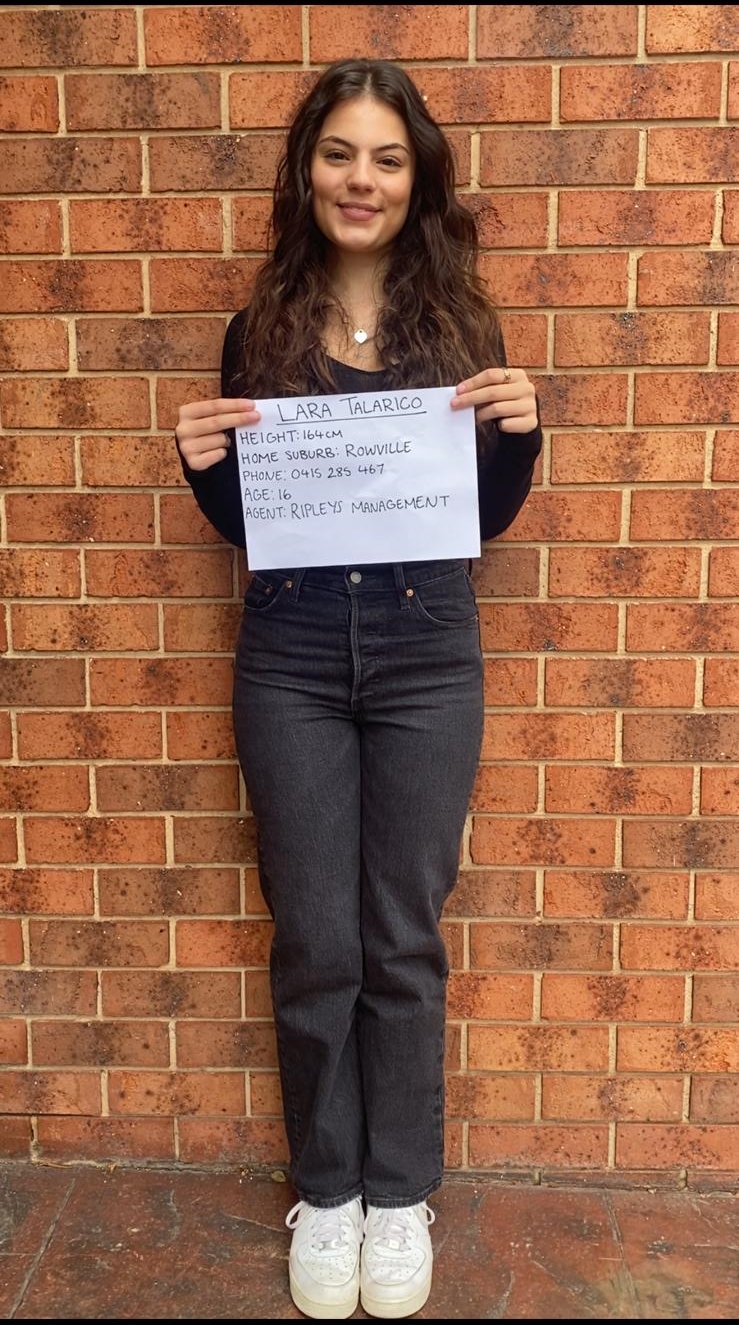 LARA TALARICO
HEIGHT: 164CM
HOME SUBURB: ROWVILLE
PHONE: 0415 285 467
AGE: 16
AGENT: RIPLEYS MANAGEMENT